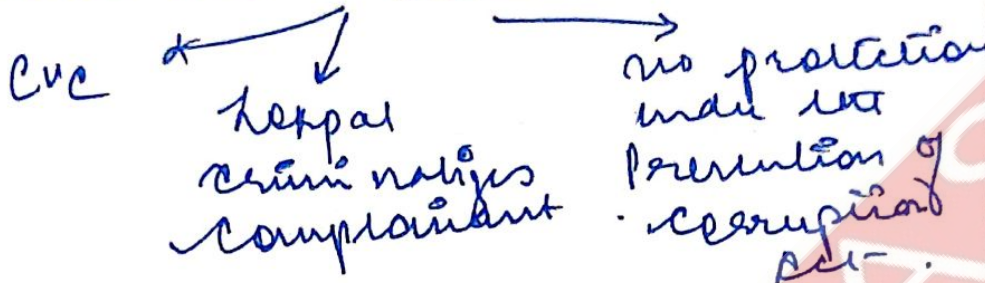 CVC
Lokpal
criminalizes
complainant
no protection
under the
Prevention of
corruption
Act.